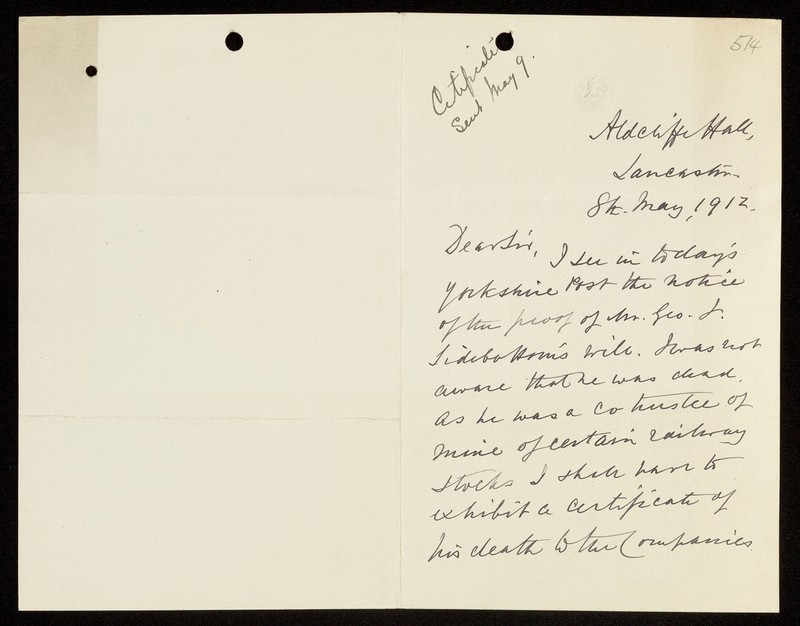 514
Certificate
Sent May 9.
Aldcliffe Hall,
Lancaster.
8th. May, 1912.
Dear Sir,
I see in today's
Yorkshire Post the notice
of the proof of Mr. Geo. J.
Sidebottom's will. I was not
aware that he was dead.
As he was a co trustee of
mine of certain railway
stocks I shall have to
exhibit a certificate of
his death to the Companies